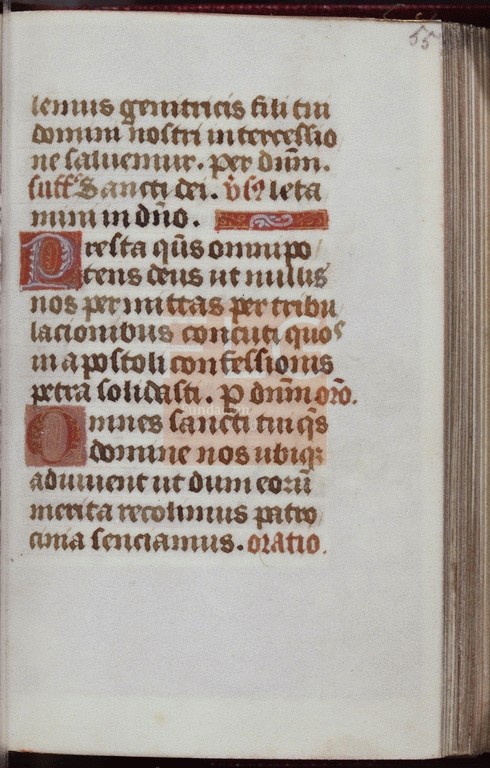 55
lemus genitricis filii tui
domini nostri intercessio
ne saluemur. per dñm.
suff᷒ Sancti dei. v̄sꝰ leta
mini in dño.
Presta qũs omnipo
tens deus ut nullis
nos permittas pertribu
lacionibus concuti quos
in apostoli confessionis
petrã solidasti. P dñm orõ.
Omnes sancti tui q̃s
domine nos ubiqꝫ
adiuuent ut dum eorũ
merita recolimus patro
cinia senciamus. oratio.